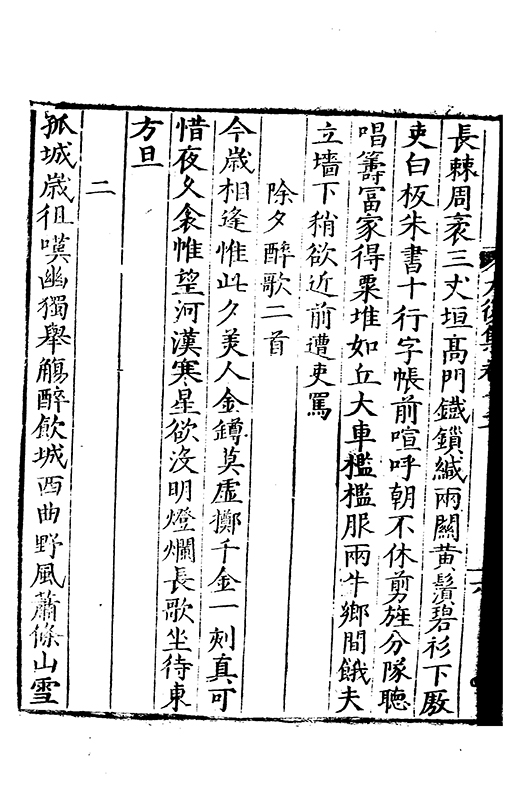 長棘周袤三丈垣高門鐵鎖緘兩關黄鬚碧衫下廄
吏白板朱書十行字帳前喧呼朝不休剪旌分隊聽
唱籌富家得粟堆如丘大車檻檻服兩牛鄉間餓夫
立墻下稍欲近前遭吏罵
除夕醉歌二首
今歳相逢惟此夕美人金鐏莫虛擲千金一刻真可
惜夜久衾帷望河漢寒星欲沒明燈爛長歌坐待東
方旦
二
孤城歳徂嘆幽獨舉觴醉飲城西曲野風蕭條山雪